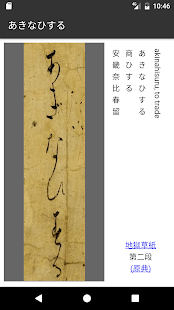 10:46
あきなひする
akinahisunu, to trade
あきなひする
商ひする
安畿奈比春留
あきなひする
地獄草紙
第二段
(原典)